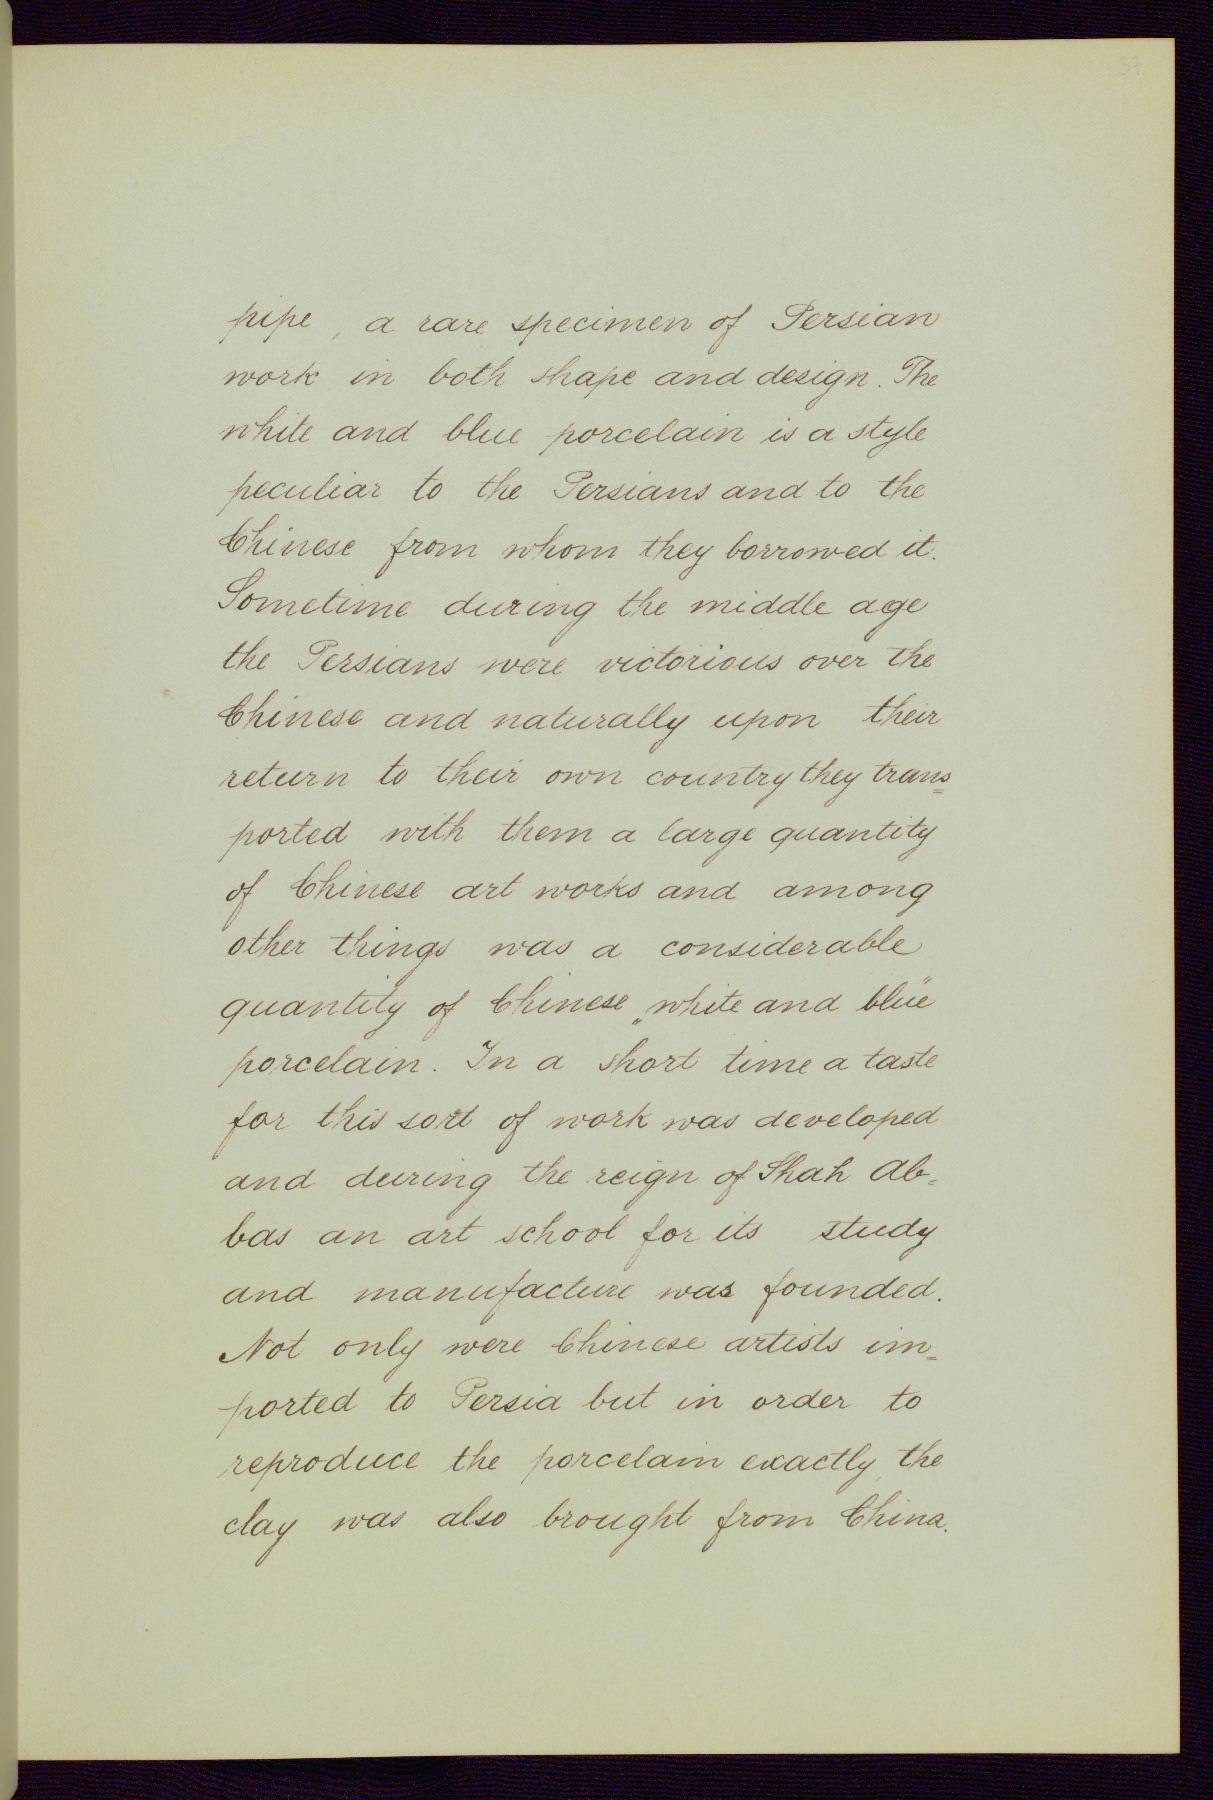 37
pipe, a rare specimen of Persian
work in both shape and design. The
white and blue porcelain is a style
peculiar to the Persians and to the
Chinese from whom they borrowed it.
Sometime during the middle age
the Persians were victorious over the
Chinese and naturally upon their
return to their own country they trans=
ported with them a large quantity
of Chinese art works and among
other things was a considerable
quantity of Chinese „white and blue"
porcelain. In a short time a taste
for this sort of work was developed
and during the reign of Shah Ab-
bas an art school for its study
and manufacture was founded.
Not only were Chinese artists im-
ported to Persia but in order to
reproduce the porcelain exactly, the
clay was also brought from China.